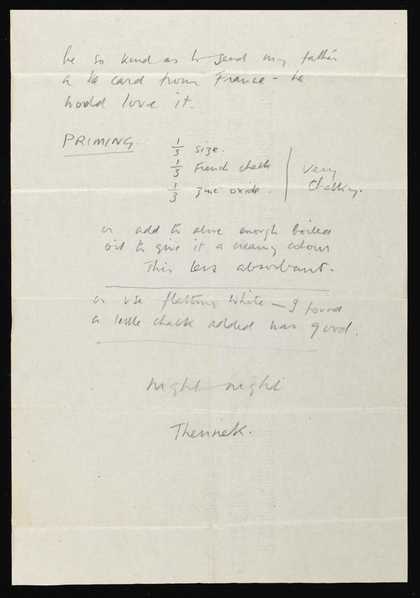 be so kind as to send my father
a card from France - he
would love it.
PRIMING
1/3 size.
1/3 French chalk
1/3 zinc oxide.
very
chalky.
or add to above enough boiled
oil to give it a creamy colour
This less absorbant.
or use flatting white - I found
a little chalk added was good.
night night